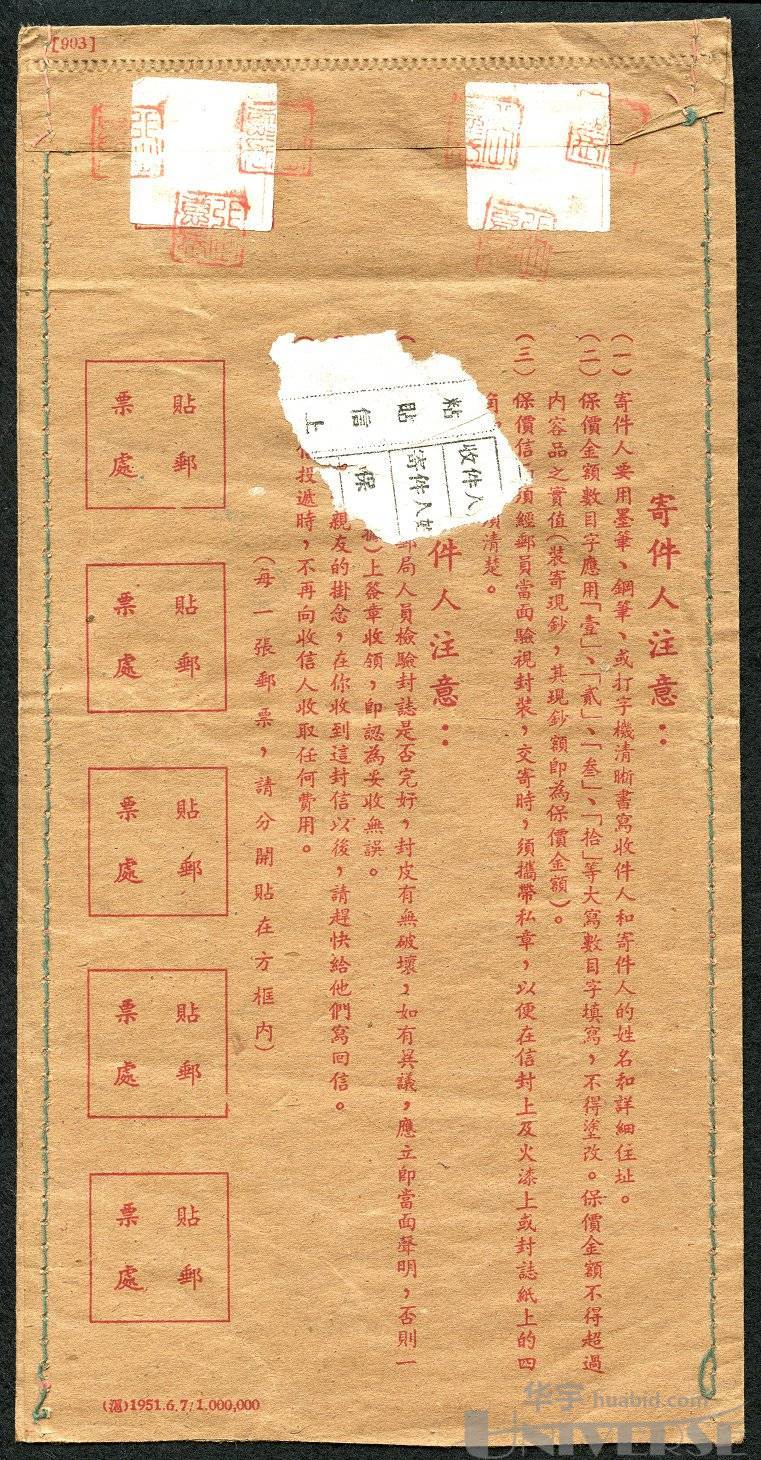 [903]
寄件人注意：
(一) 寄件人要用墨筆、鋼筆、或打字機清晰書寫收件人和寄件人的姓名和詳細住址。
(二) 保價金額數目字應用「壹」、「貳」、「叁」、「拾」等大寫數目字填寫，不得塗改。保價金額不得超過
內容品之實值(裝寄現鈔，其現鈔額即為保價金額)。
(三) 保價信 須經郵員當面驗視封裝，交寄時，須攜帶私章，以便在信封上及火漆上或封誌紙上的四
角 須清楚。
件人注意：
郵局人員檢驗封誌是否完好，封皮有無破壞，如有異議，應立即當面聲明，否則一
)上簽章收領，即認為妥收無誤。
親友的掛念，在你收到這封信以後，請趕快給他們寫回信。
投遞時，不再向收信人收取任何費用。
(每一張郵票，請分開貼在方框內)
粘貼信上
收件人
寄件人
保
貼郵
票處
貼郵
票處
貼郵
票處
貼郵
票處
貼郵
票處
(滬)1951.6.7/1.000,000
华宇 huabid.com
UNIVERSE